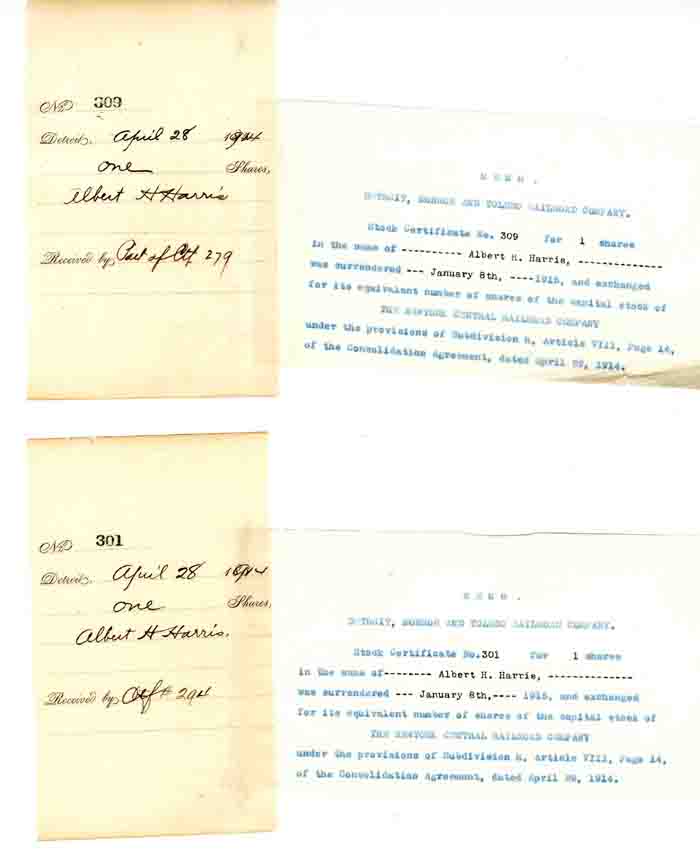 No 309
Detroit, April 28 1914
one Shares,
Albert H Harris
Received by, Part of Ctf 279
MEMO.
DETROIT, MONROE AND TOLEDO RAILROAD COMPANY.
Stock Certificate No. 309 for 1 shares
in the name of ---------- Albert H. Harris, --------------
was surrendered --- January 8th, ----1915, and exchanged
for its equivalent number of shares of the capital stock of
THE NEWYORK CENTRAL RAILROAD COMPANY
under the provisions of Subdivision H, Article VIII, Page 14,
of the Consolidation Agreement, dated April 29, 1914.
No 301
Detroit, April 28 1914
one Shares,
Albert H Harris.
Received by, Ctf # 294
MEMO.
DETROIT, MONROE AND TOLEDO RAILROAD COMPANY.
Stock Certificate No.301 for 1 shares
in the name of-------- Albert H. Harris, --------------
was surrendered --- January 8th,---- 1915, and exchanged
for its equivalent number of shares of the capital stock of
THE NEWYORK CENTRAL RAILROAD COMPANY
under the provisions of Subdivision H, Article VIII, Page 14,
of the Consolidation Agreement, dated April 29, 1914.